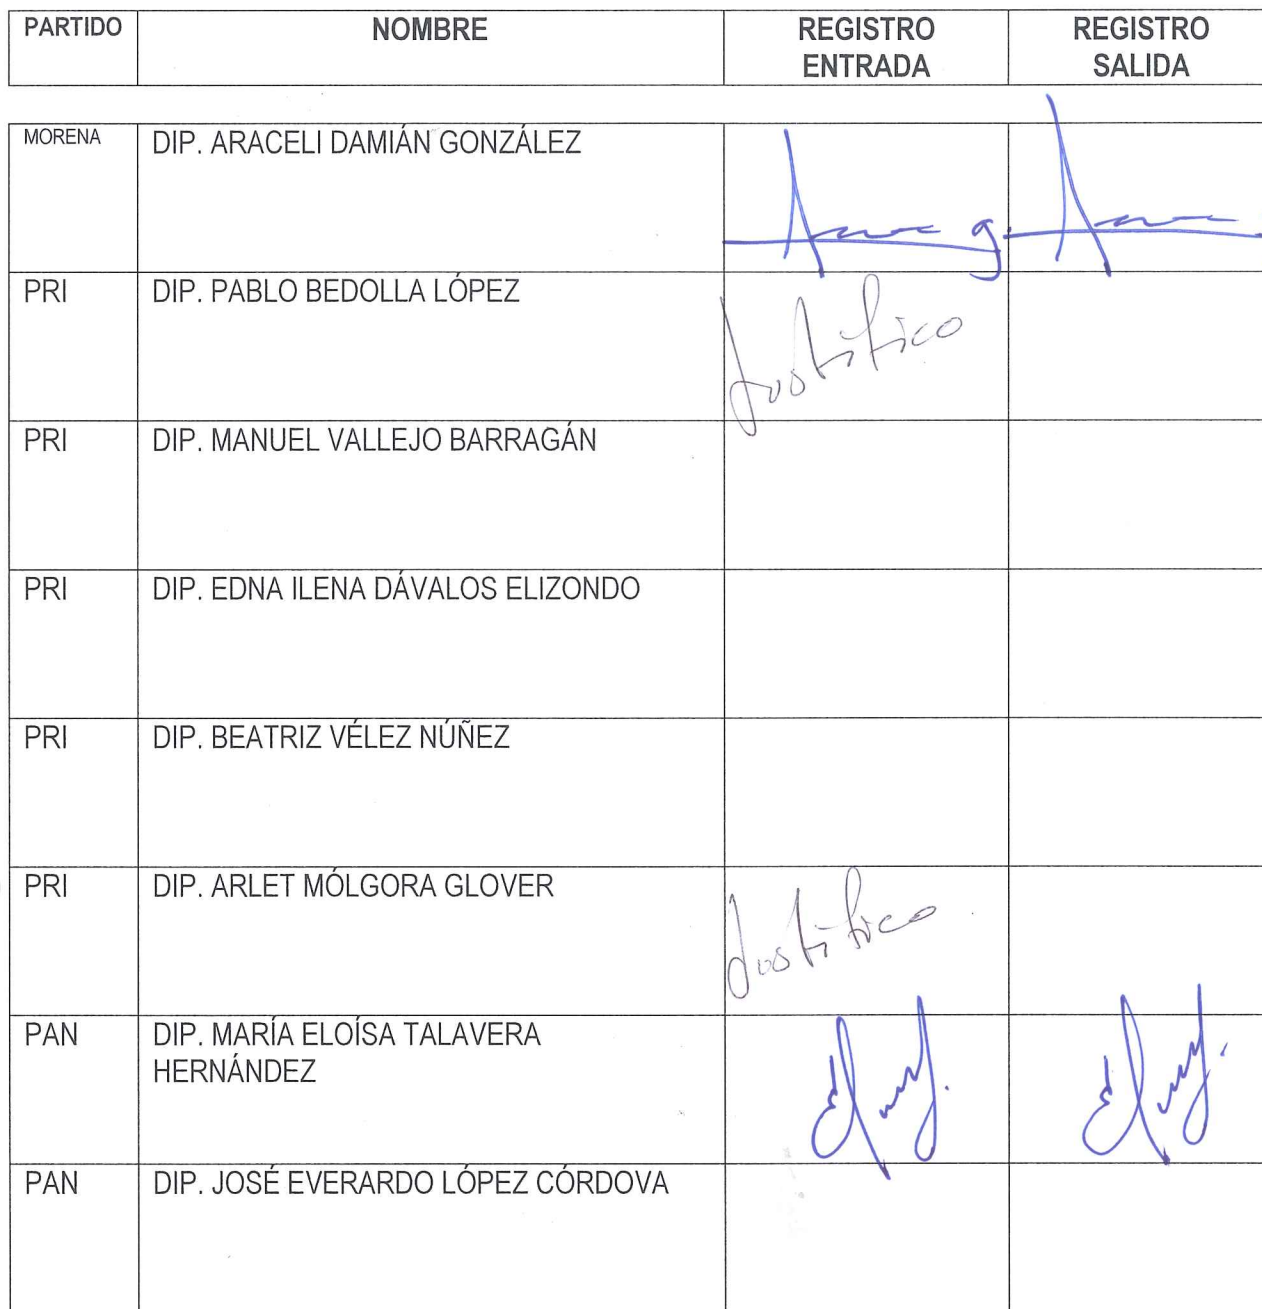 PARTIDO NOMBRE REGISTRO ENTRADA REGISTRO SALIDA
MORENA DIP. ARACELI DAMIÁN GONZÁLEZ
PRI DIP. PABLO BEDOLLA LÓPEZ Justifico
PRI DIP. MANUEL VALLEJO BARRAGÁN
PRI DIP. EDNA ILENA DÁVALOS ELIZONDO
PRI DIP. BEATRIZ VÉLEZ NÚÑEZ
PRI DIP. ARLET MÓLGORA GLOVER Justifico
PAN DIP. MARÍA ELOÍSA TALAVERA
HERNÁNDEZ
PAN DIP. JOSÉ EVERARDO LÓPEZ CÓRDOVA